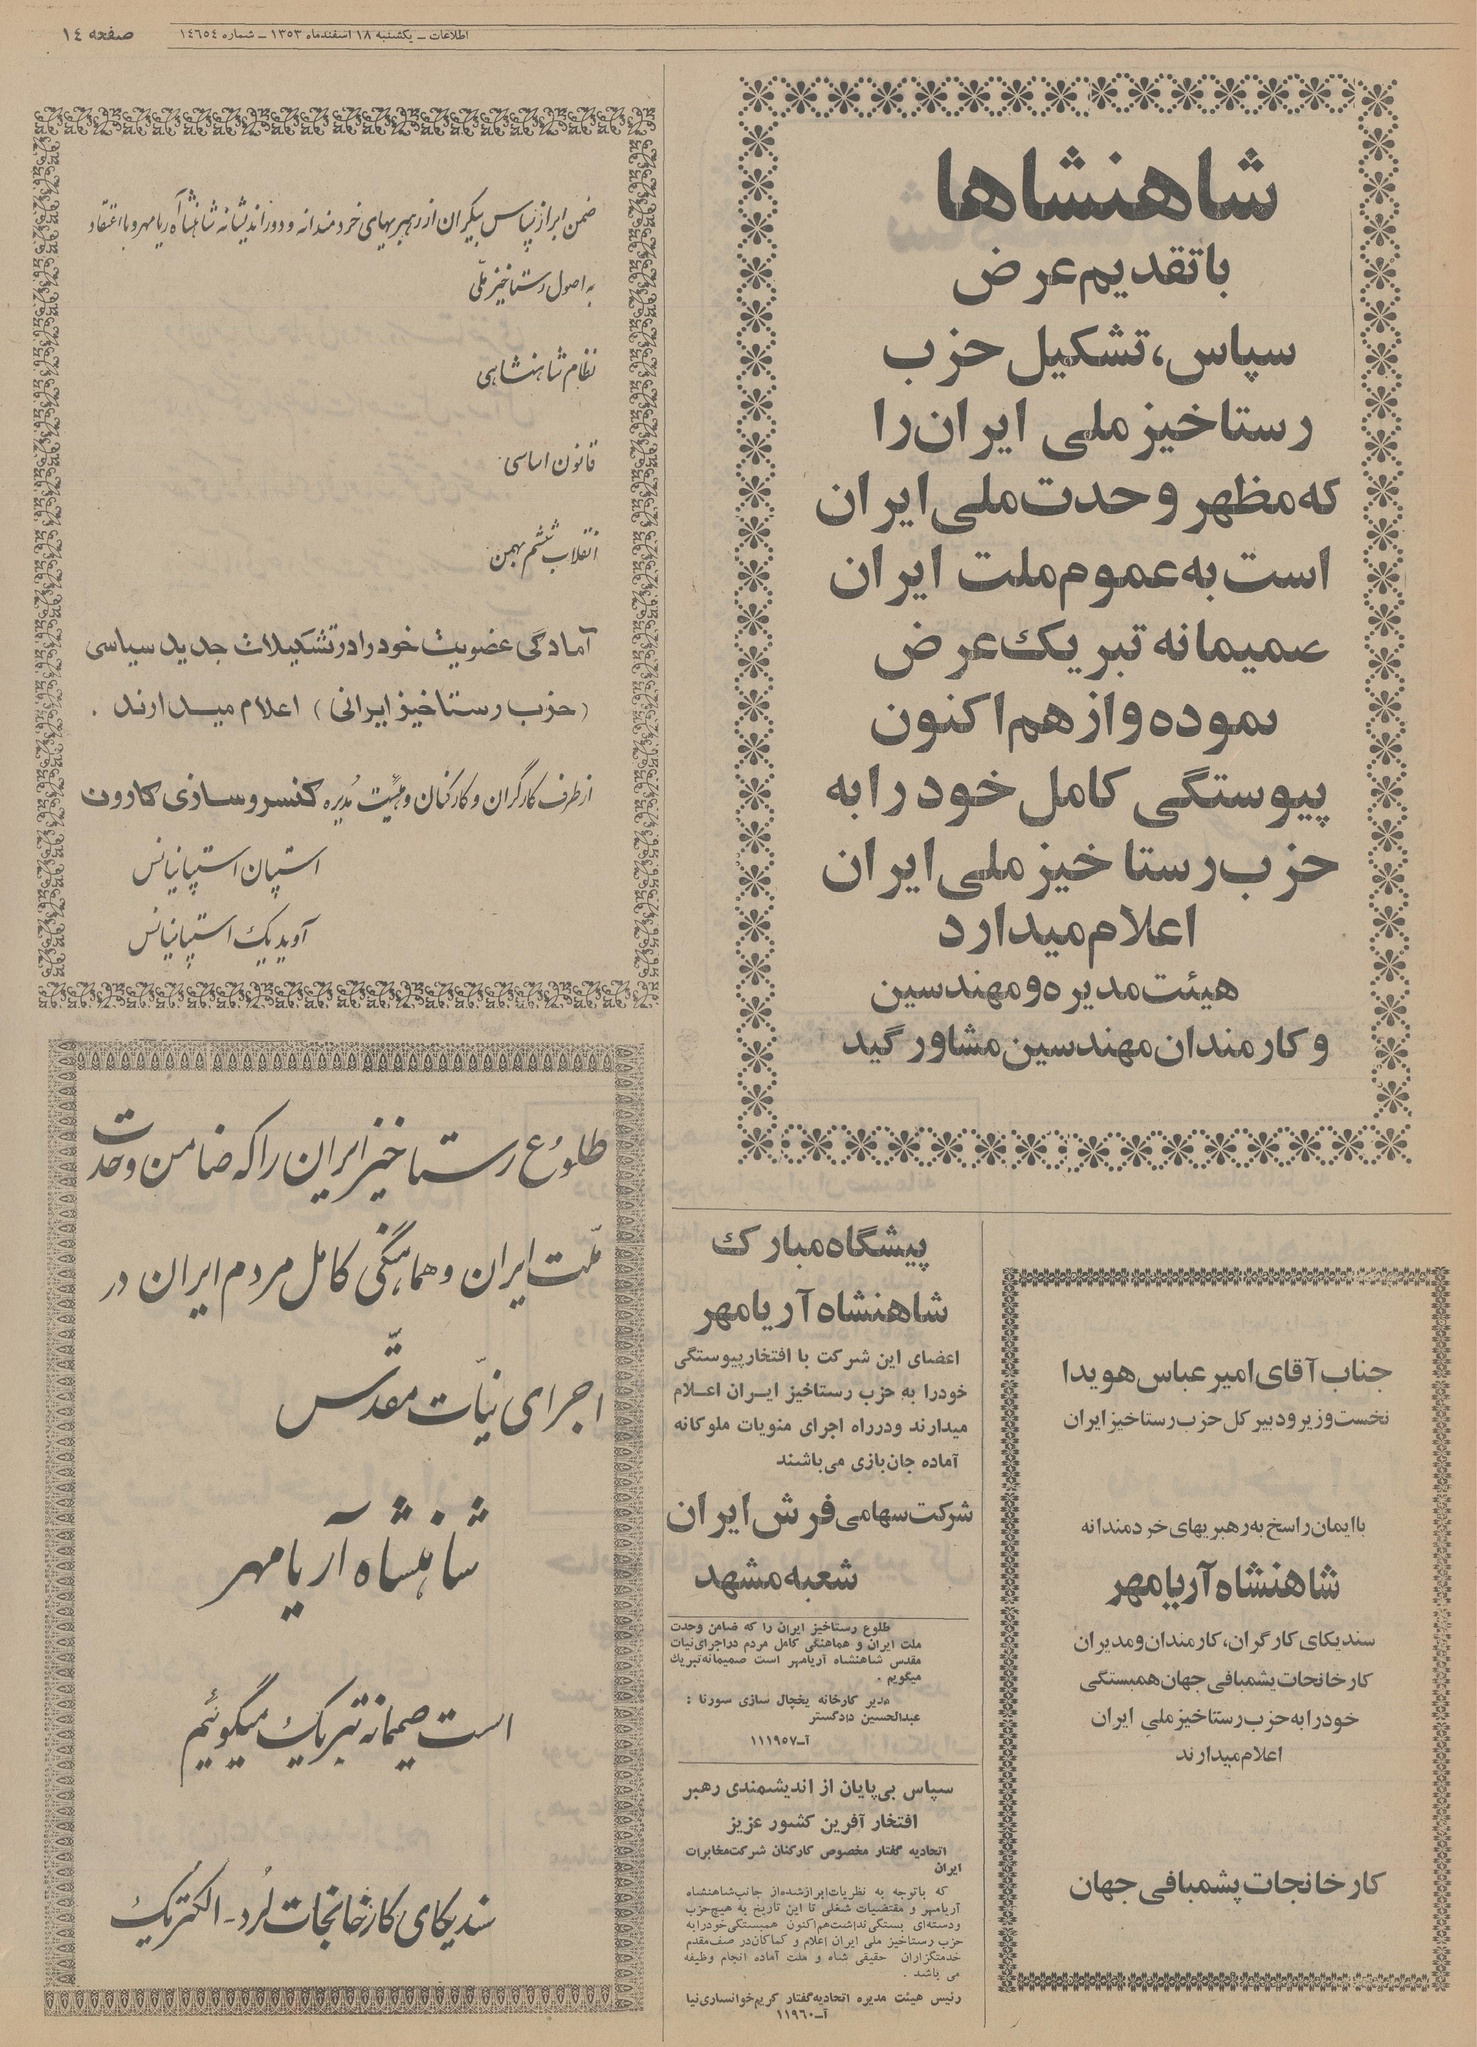 اطلاعات ــ یکشنبه ۱۸ اسفندماه ۱۳۵۳ ــ شماره ۱۴۶۵۴
صفحه ۱۴
شاهنشاها
با تقدیم عرض
سپاس، تشکیل حزب
رستاخیز ملی ایران را
که مظهر وحدت ملی ایران
است به عموم ملت ایران
صمیمانه تبریک عرض
نموده و از هم اکنون
پیوستگی کامل خود را به
حزب رستاخیز ملی ایران
اعلام میدارد
هیئت مدیره و مهندسین
و کارمندان مهندسین مشاور گید
ضمن ابراز سپاس بیکران از رهبریهای خردمندانه و دوراندیشانه شاهنشاه آریامهر و با اعتقاد
به اصول رستاخیز ملّی
نظام شاهنشاهی
قانون اساسی
انقلاب ششم بهمن
آمادگی عضویت خود را در تشکیلات جدید سیاسی
(حزب رستاخیز ایرانی) اعلام میدارند.
از طرف کارگران و کارکنان و هیئت مُدیره کنسروسازی کارون
استپان استپانیانس
آویدیک استپانیانس
جناب آقای امیر عباس هویدا
نخست وزیر و دبیر کل حزب رستاخیز ایران
با ایمان راسخ به رهبریهای خردمندانه
شاهنشاه آریامهر
سندیکای کارگران، کارمندان و مدیران
کارخانجات پشمبافی جهان همبستگی
خود را به حزب رستاخیز ملی ایران
اعلام میدارند
کارخانجات پشمبافی جهان
پیشگاه مبارک
شاهنشاه آریامهر
اعضای این شرکت با افتخار پیوستگی
خود را به حزب رستاخیز ایران اعلام
میدارند و در راه اجرای منویات ملوکانه
آماده جان بازی می باشند
شرکت سهامی فرش ایران
شعبه مشهد
طلوع رستاخیز ایران را که ضامن وحدت
ملت ایران و هماهنگی کامل مردم در اجرای نیات
مقدس شاهنشاه آریامهر است صمیمانه تبریک
میگویم .
مدیر کارخانه یخچال سازی سورنا :
عبدالحسین دادگستر
آ-۱۱۱۹۵۷
سپاس بی پایان از اندیشمندی رهبر
افتخار آفرین کشور عزیز
اتحادیه گفتار مخصوص کارکنان شرکت مخابرات
ایران
که با توجه به نظریات ابراز شده از جانب شاهنشاه
آریامهر و مقتضیات شغلی تا این تاریخ به هیچ حزب
و دسته ای بستگی نداشت هم اکنون همبستگی خود را به
حزب رستاخیز ملی ایران اعلام و کماکان در صف مقدم
خدمتگزاران حقیقی شاه و ملت آماده انجام وظیفه
می باشد .
رئیس هیئت مدیره اتحادیه گفتار کریم خوانساری نیا
آ-۱۱۹۶۰
طلوع رستاخیز ایران را که ضامن وحدت
ملّت ایران و هماهنگی کامل مردم ایران در
اجرای نیّات مقدّس
شاهنشاه آریامهر
است صمیمانه تبریک میگوئیم
سندیکای کارخانجات لُرد - الکتریک